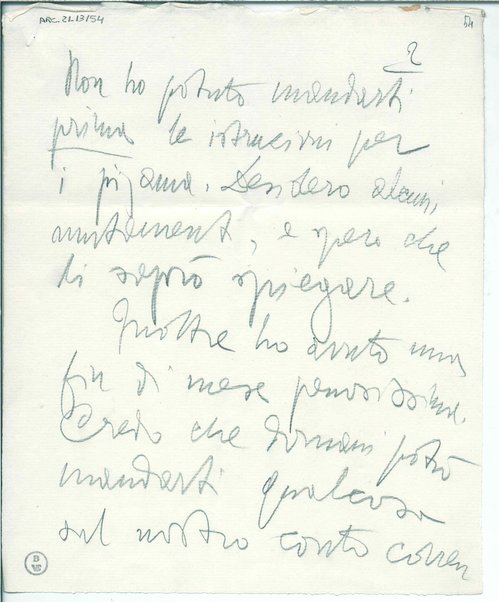 ARC.21.13/54
54
2
Non ho potuto mandarti
prima le istruzioni per
i pijama. Desidero alcuni
mutamenti, e spero che
ti saprò spiegare.
Inoltre ho avuto una
fin di mese penosissima.
Credo che domani potrò
mandarti qualcosa
sul nostro conto corren
B